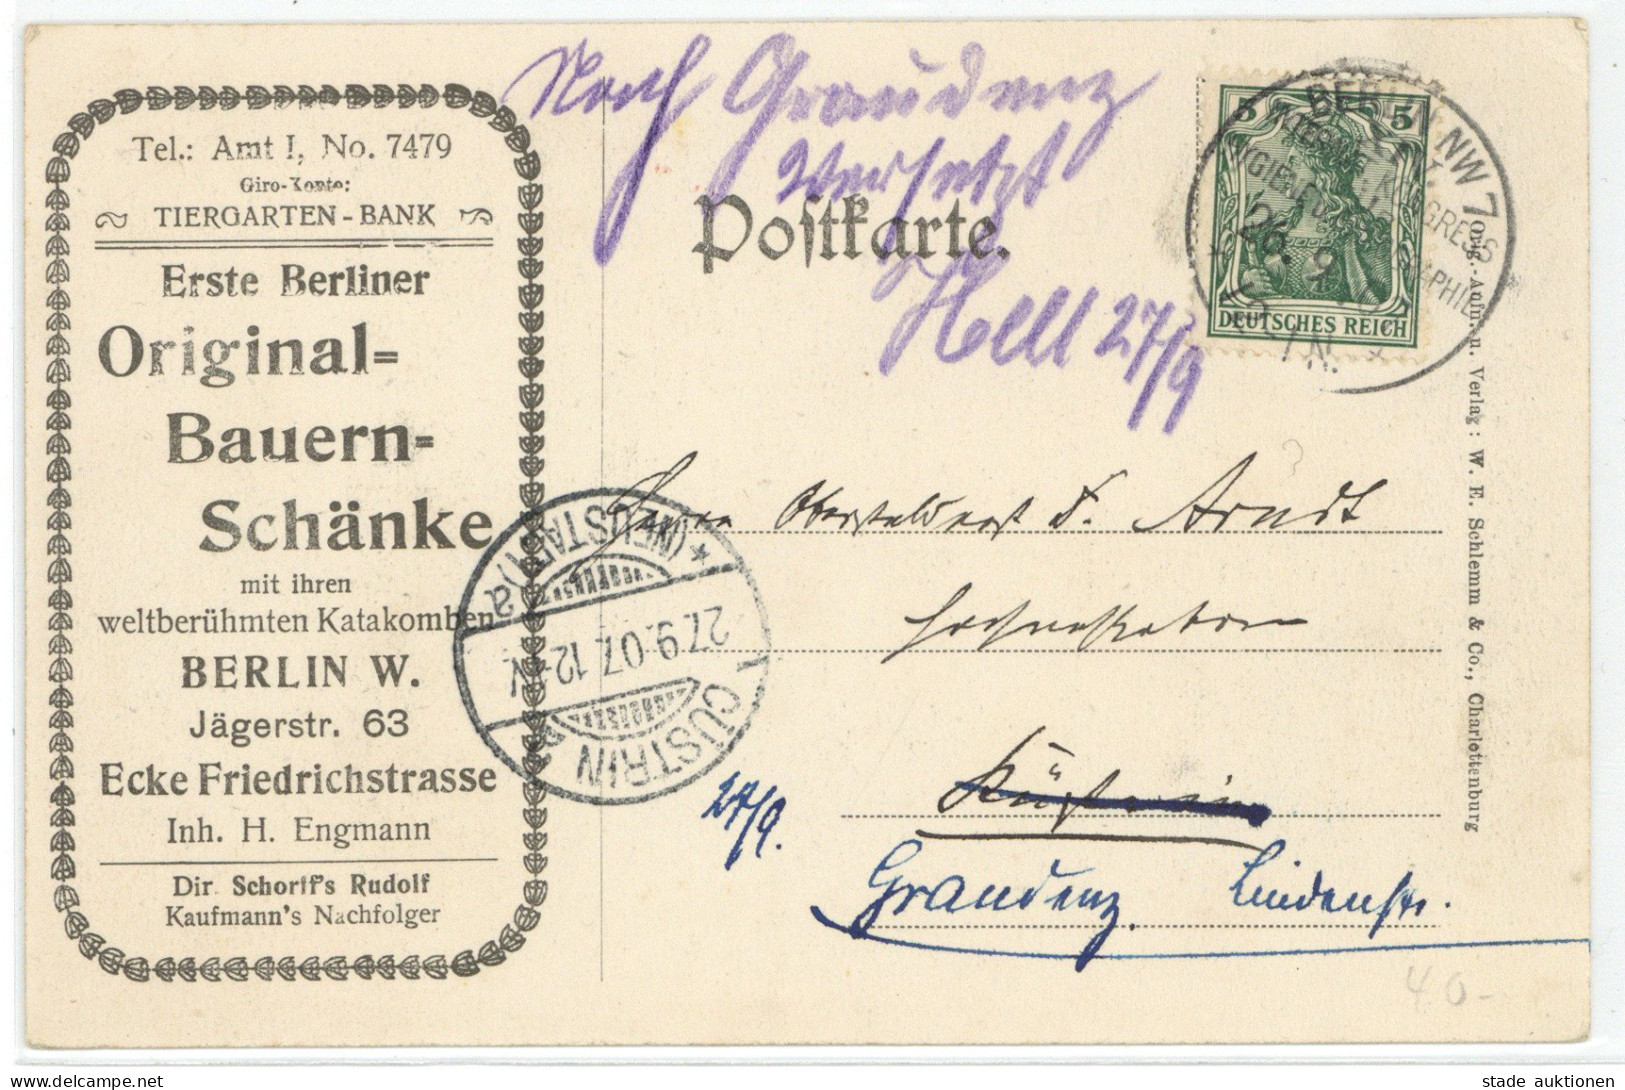 Tel.: Amt I, No. 7479
Giro-Konto:
TIERGARTEN-BANK
Erste Berliner
Original-
Bauern-
Schänke
mit ihren
weltberühmten Katakomben
BERLIN W.
Jägerstr. 63
Ecke Friedrichstrasse
Inh. H. Engmann
Dir. Schorff's Rudolf
Kaufmann's Nachfolger
Nach Graudenz
versetzt
27/9
Postkarte.
BERLIN NW 7
26. 9
5 5
DEUTSCHES REICH
Orig.-Aufn. u. Verlag: W. E. Schlemm & Co., Charlottenburg
CÜSTRIN
27.9.07. 12-1N.
(NEUSTADT) a
Herrn Oberstabsarzt Dr. Arndt
Küstrin
27/9.
Graudenz. Lindenstr.
40-
stade auktionen